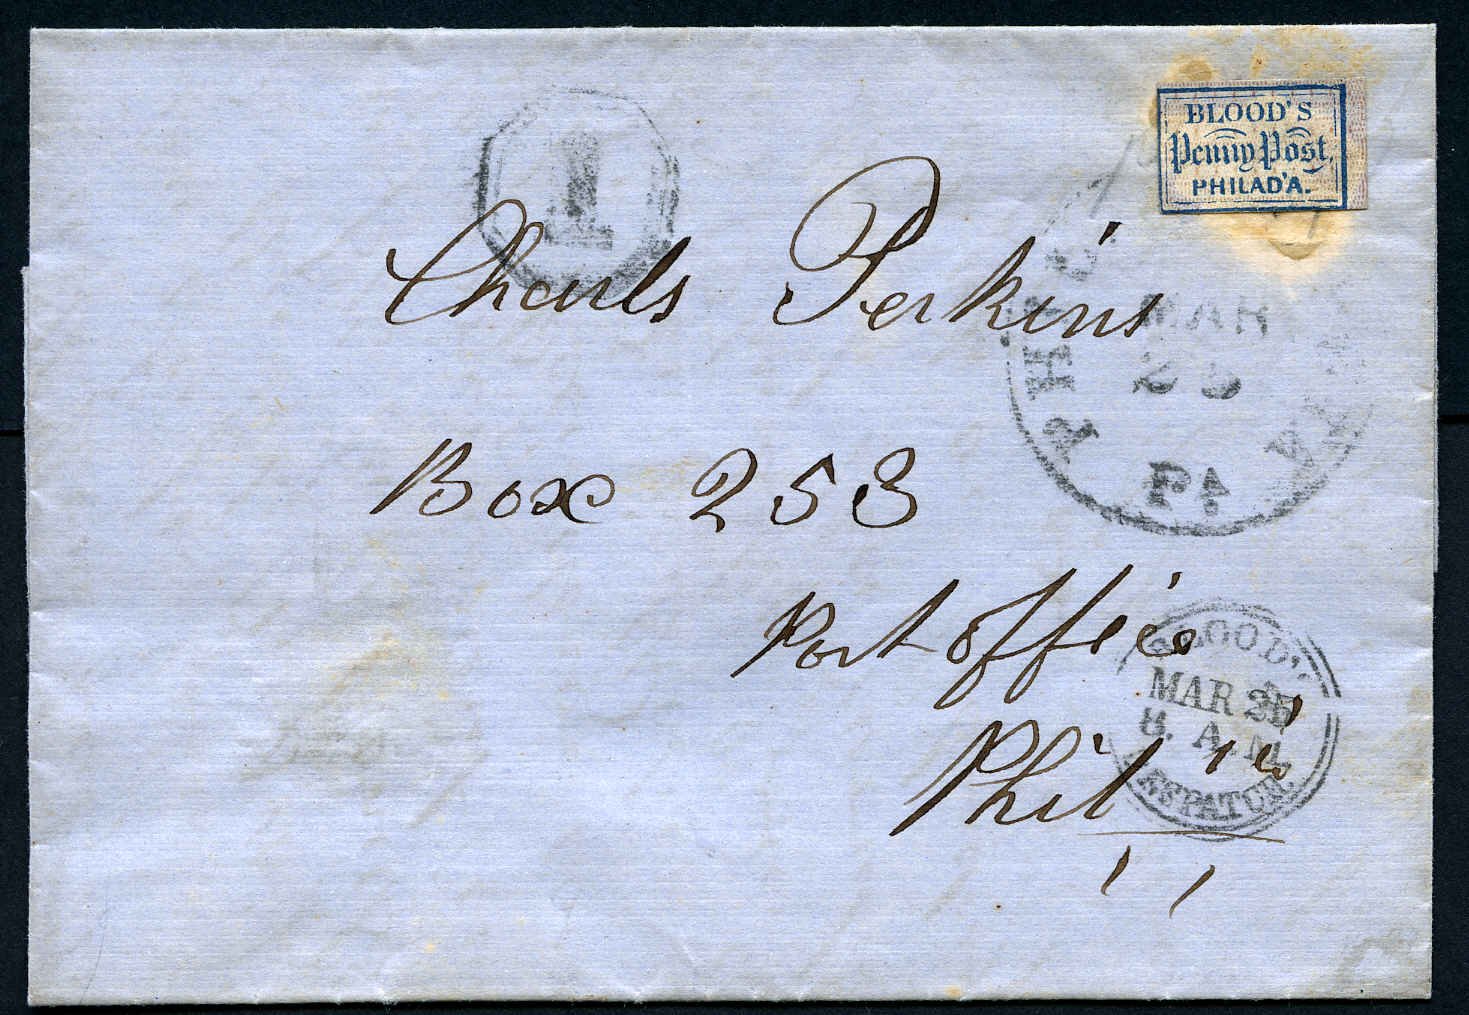 BLOOD'S
Penny Post,
PHILAD'A.
1
Charls Perkins
MAR
25
PA
Box 253
Post offic
BLOOD'S
MAR 25
8. A.M.
DESPATCH.
Phil